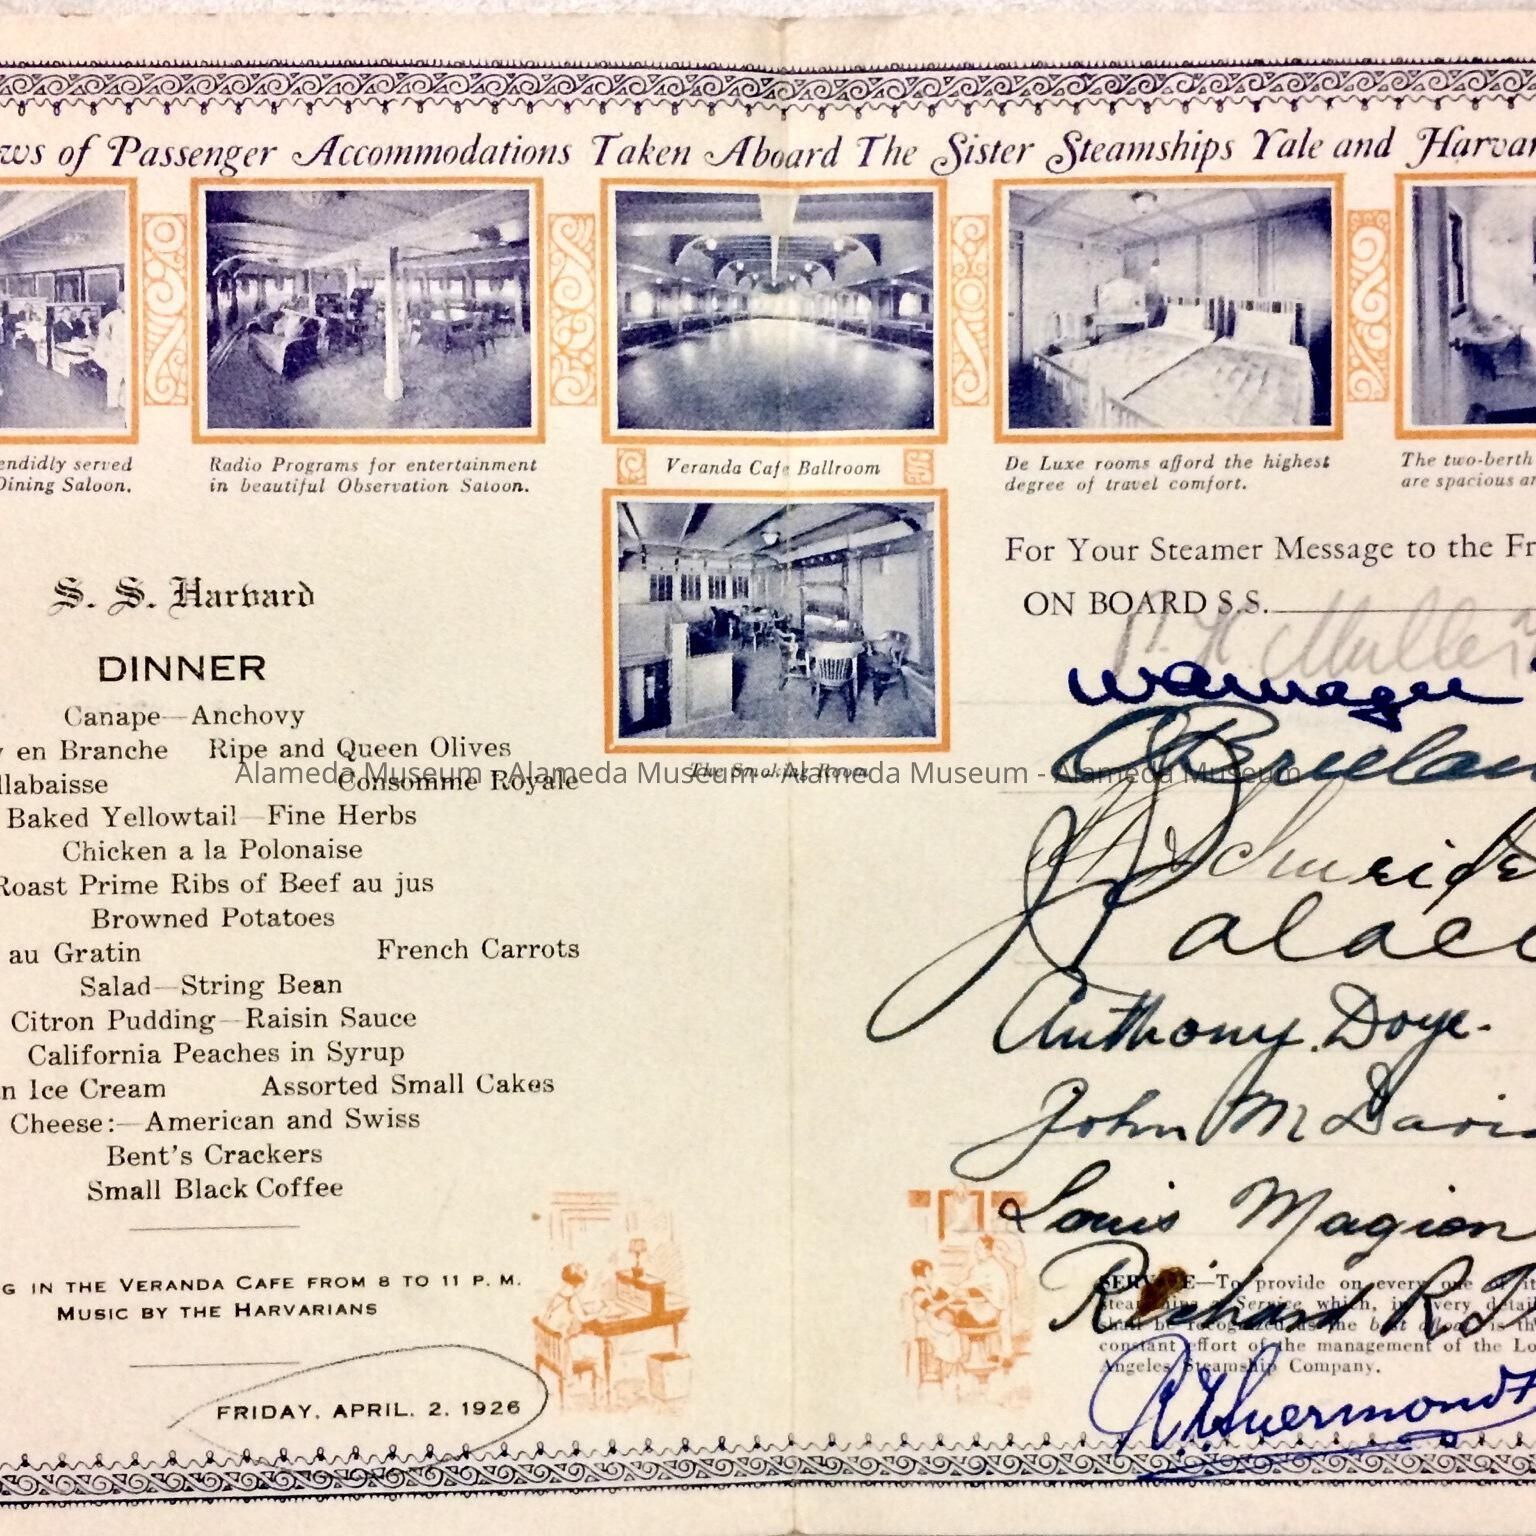 ws of Passenger Accommodations Taken Aboard The Sister Steamships Yale and Harvar
endidly served
Dining Saloon.
Radio Programs for entertainment
in beautiful Observation Saloon.
Veranda Cafe Ballroom
De Luxe rooms afford the highest
degree of travel comfort.
The two-berth
are spacious an
The Smoking Room
S. S. Harvard
DINNER
Canape—Anchovy
y en Branche Ripe and Queen Olives
llabaisse Consomme Royale
Baked Yellowtail—Fine Herbs
Chicken a la Polonaise
Roast Prime Ribs of Beef au jus
Browned Potatoes
au Gratin French Carrots
Salad—String Bean
Citron Pudding—Raisin Sauce
California Peaches in Syrup
n Ice Cream Assorted Small Cakes
Cheese:—American and Swiss
Bent's Crackers
Small Black Coffee
G IN THE VERANDA CAFE FROM 8 TO 11 P. M.
MUSIC BY THE HARVARIANS
FRIDAY, APRIL. 2, 1926
For Your Steamer Message to the Fr
ON BOARD S.S.
Anthony Doye.
John M Davis
Louis Magion
Richard R.
SERVICE—To provide on every one of it
steamships a Service which, in every detail
shall be recognized as the best afloat is th
constant effort of the management of the Lo
Angeles Steamship Company.
Alameda Museum - Alameda Museum - Alameda Museum - Alameda Museum